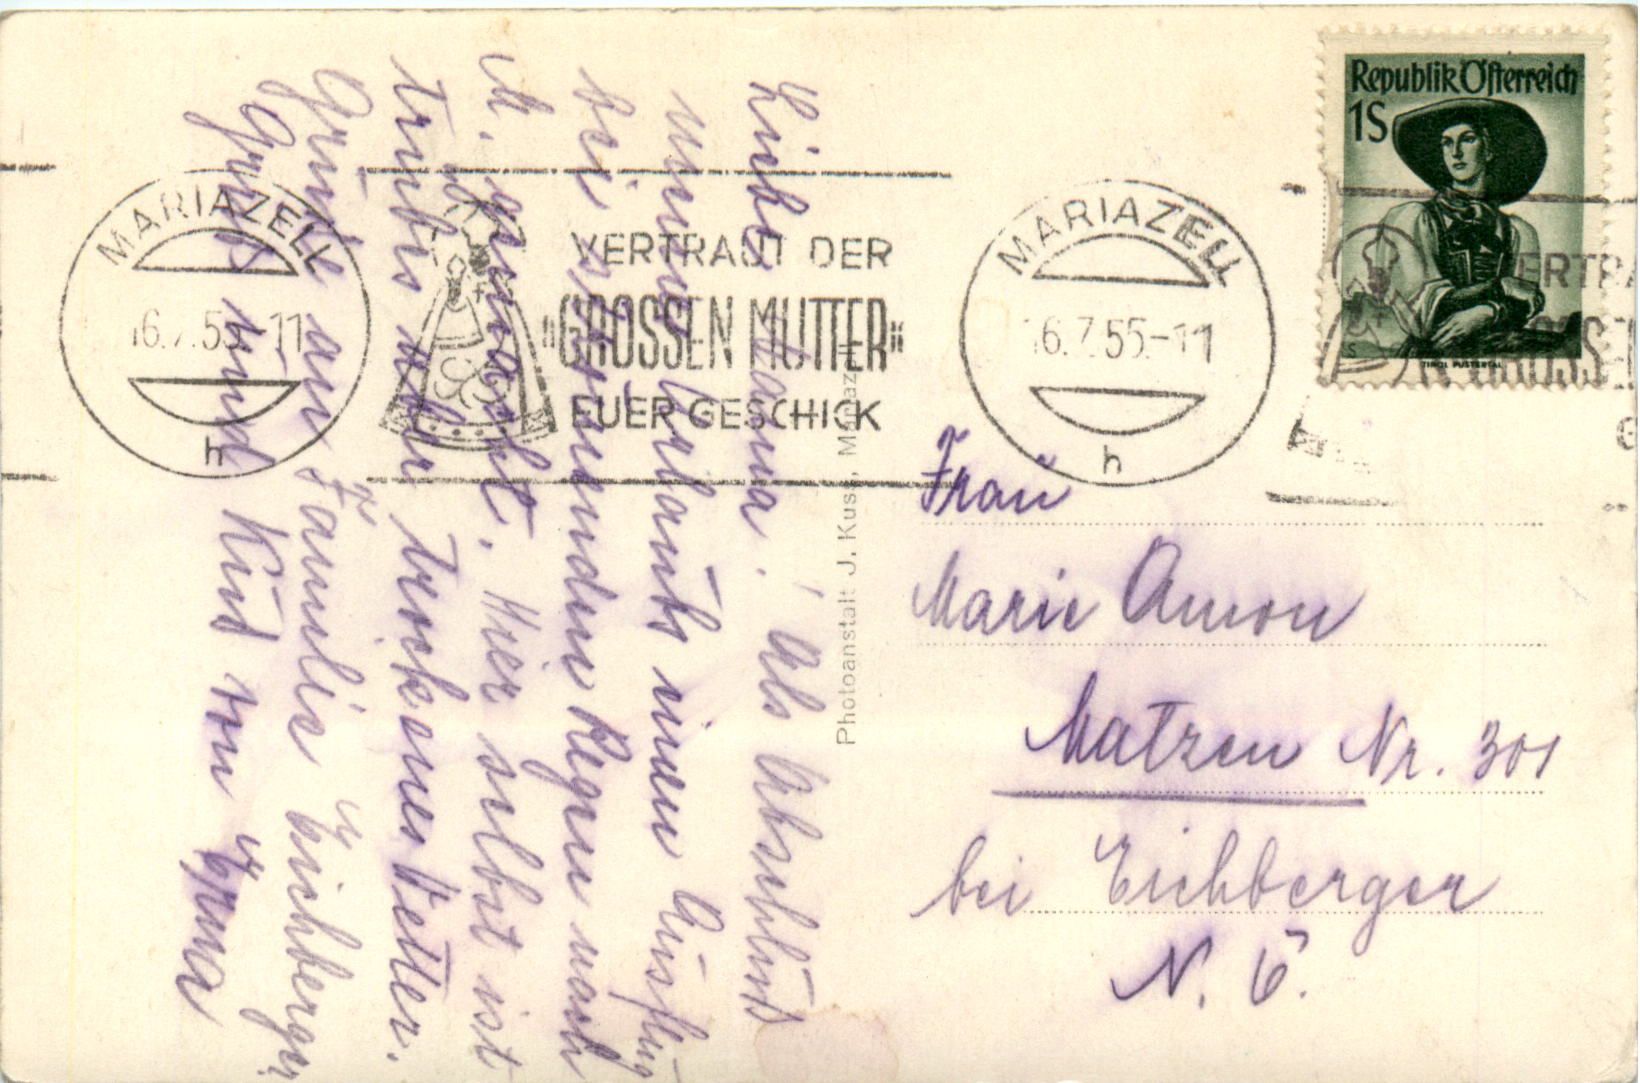 Liebe Mama! Als Abschluß
unseres Urlaubs einen Ausflug
bei strömenden Regen nach
M. gemacht. Hier selbst ist
trübes aber trockenes Wetter.
Grüße an Familie Eichberger,
Gruß und Kuß von Erna
MARIAZELL
16.7.55-11
h
VERTRAUT DER
"GROSSEN MUTTER"
EUER GESCHICK
MARIAZELL
16.7.55-11
h
Republik Österreich
1S
TIROL PUSTERTAL
Photoanstalt J. Kuss, Mariazell
Frau
Marie Amon
Matzen Nr. 301
bei Eichberger
N. Ö.